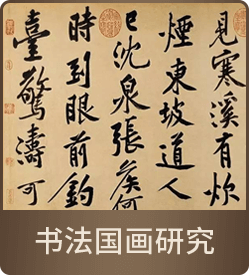 見寒溪有炊
煙東坡道人
已沈泉張侯何
時到眼前釣
臺驚濤可
书法国画研究